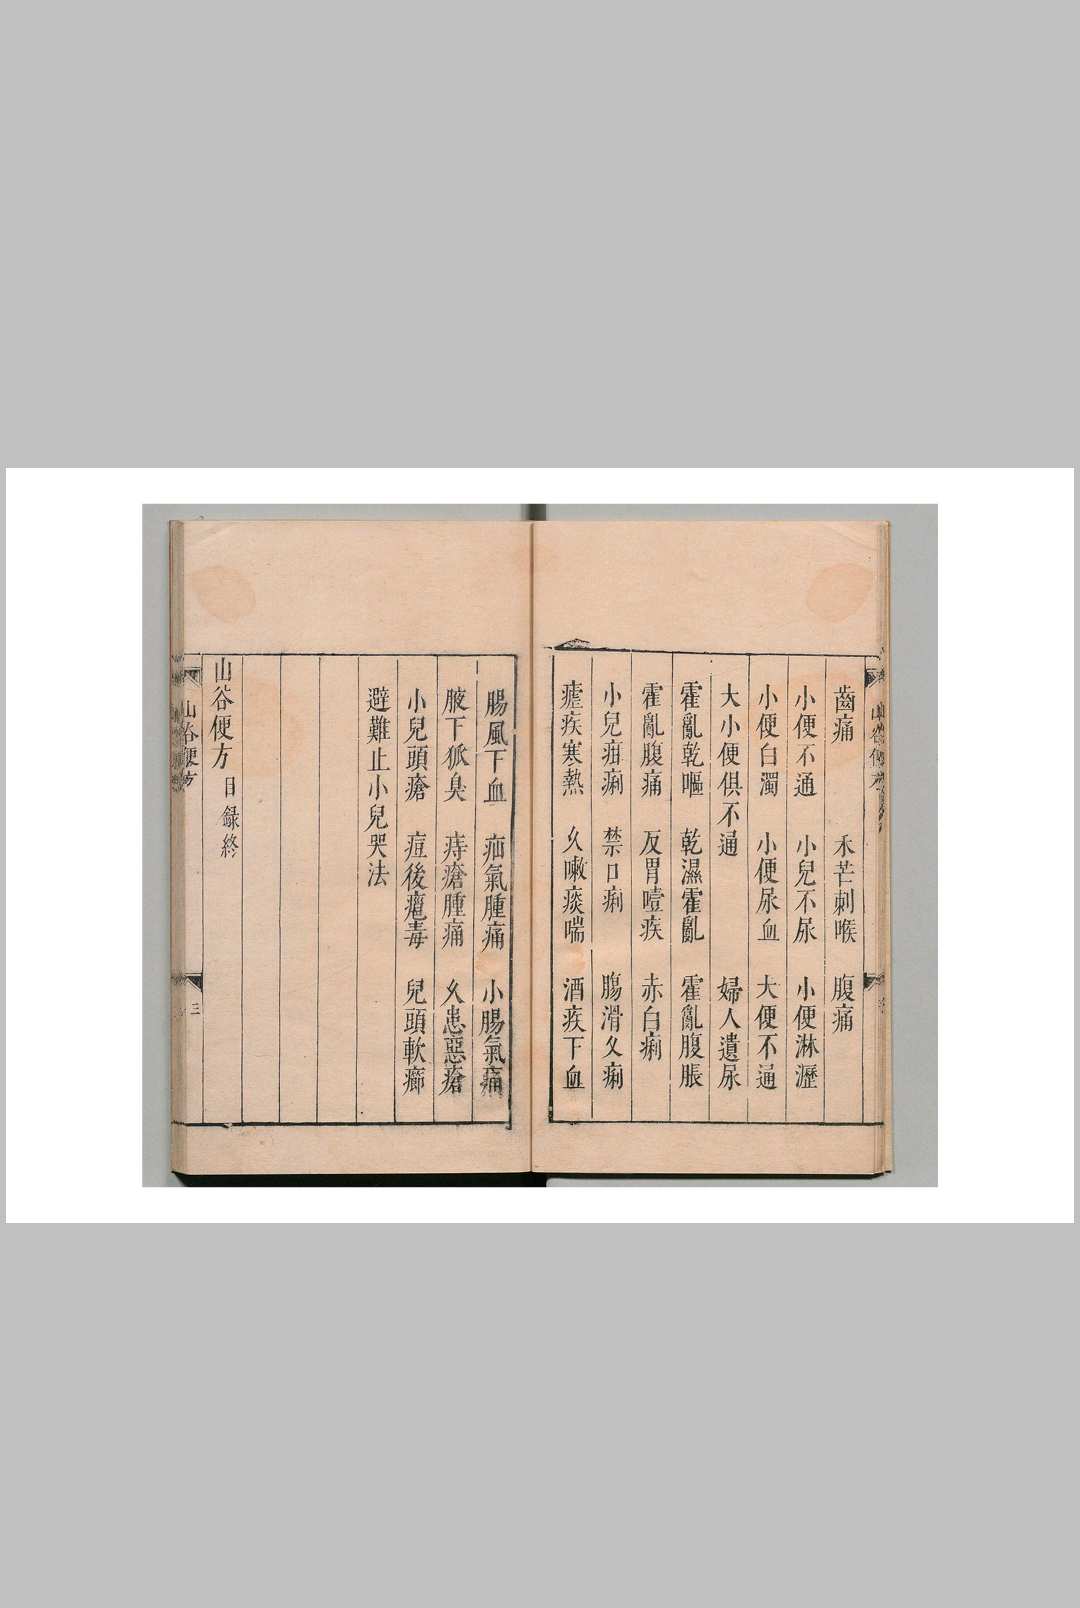 齒痛 禾芒刺喉 腹痛
小便不通 小兒不尿 小便淋瀝
小便白濁 小便尿血 大便不通
大小便俱不通 婦人遺尿
霍亂乾嘔 乾濕霍亂 霍亂腹脹
霍亂腹痛 反胃噎疾 赤白痢
小兒疳痢 禁口痢 腸滑久痢
瘧疾寒熱 久嗽痰喘 酒疾下血
腸風下血 疝氣腫痛 小腸氣痛
腋下狐臭 痔瘡腫痛 久患惡瘡
小兒頭瘡 痘後癰毒 兒頭軟癤
避難止小兒哭法
山谷便方 目録終
山谷便方 三